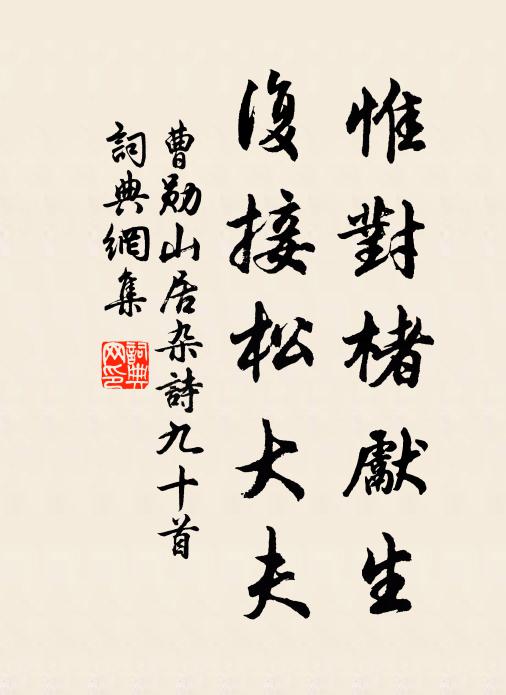 惟對楮獻生
復接松大夫
曹勛山居杂詩九十首
詞典網集
詞典網印